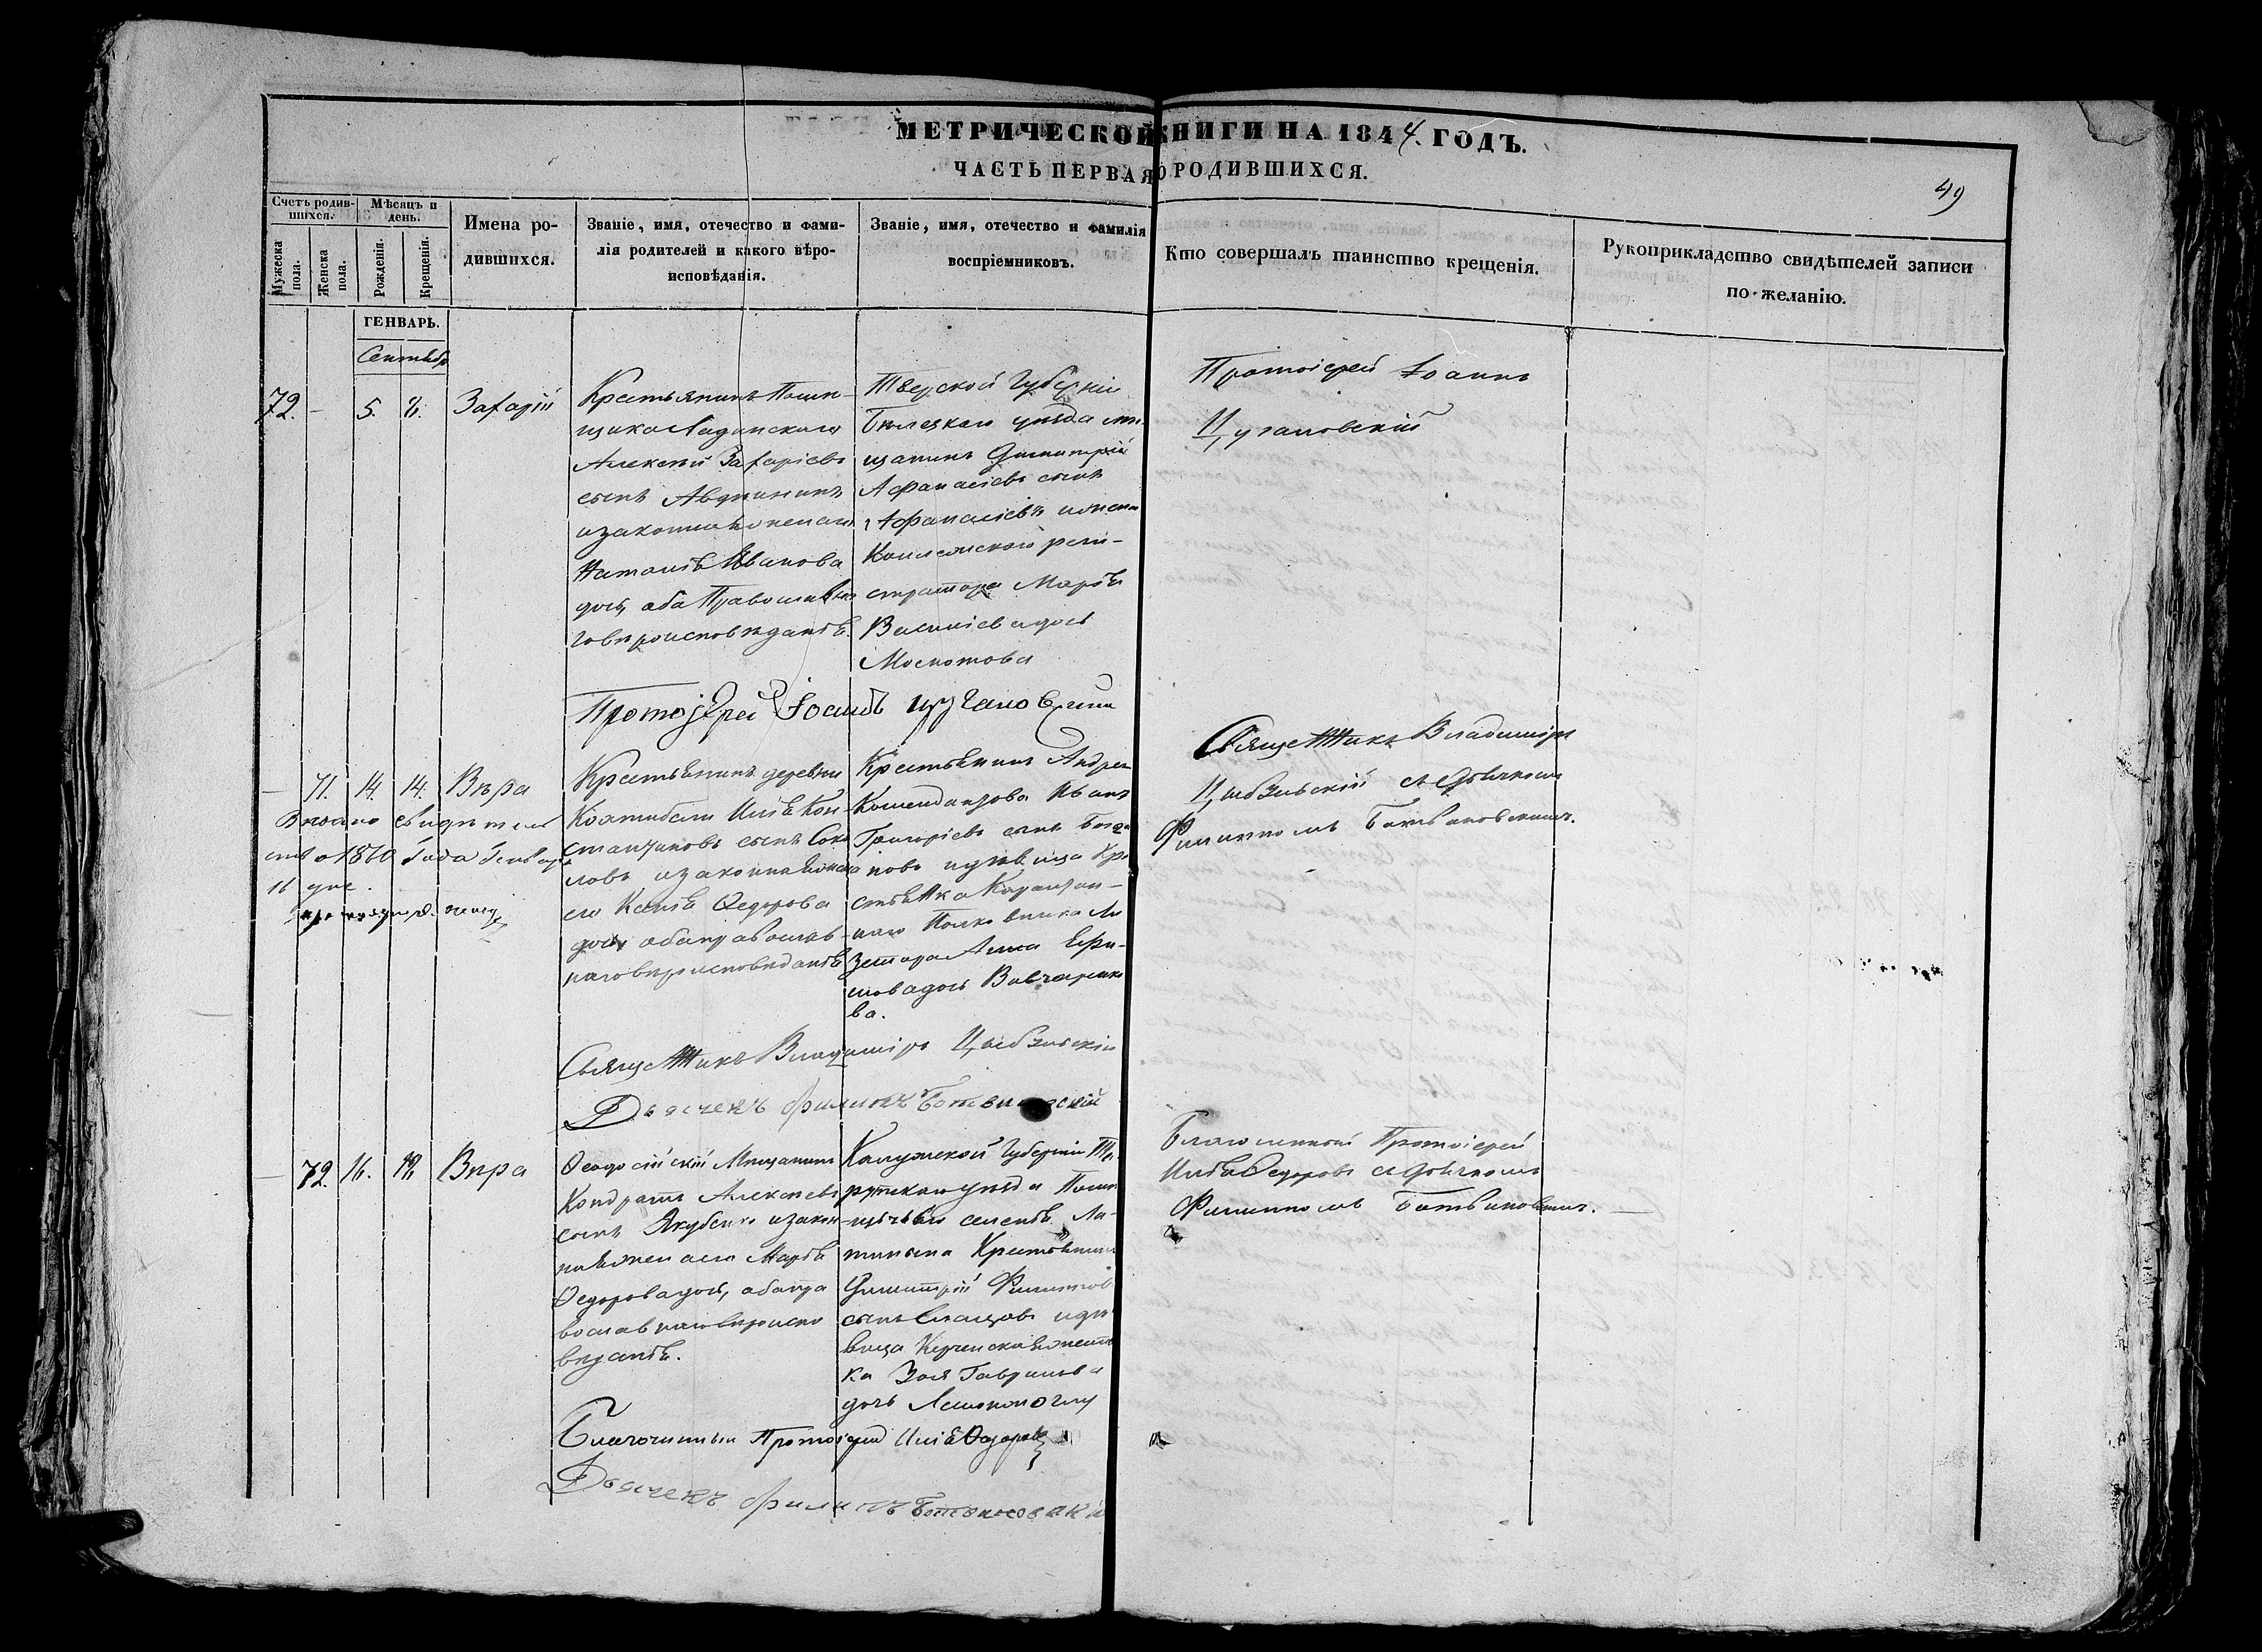 МЕТРИЧЕСКОЙ КНИГИ НА 1844. ГОДЪ.
ЧАСТЬ ПЕРВАЯ О РОДИВШИХСЯ.
49
Счетъ родившихся.
Мѣсяцъ и день.
Мужеска пола.
Женска пола.
Рожденія.
Крещенія.
Имена родившихся.
Званіе, имя, отечество и фамилія родителей и какого вѣроисповѣданія.
Званіе, имя, отечество и фамилія воспріемниковъ.
Кто совершалъ таинство крещенія.
Рукоприкладство свидѣтелей записи по желанію.
ГЕНВАРЬ.
Сентябр
72. - 5. 8. Захарій
Крестьянинъ Поме-
щика Ладинскаго
Алексѣй Захаріевъ
сынъ
и законная жена его
Наталія Иванова
дочь, оба Православна
го вѣроисповѣданія.
Тверской Губерніи
уѣзда мѣ-
щанинъ Димитрій
Афанасіевъ сынъ
Афанасіевъ и жена
Коллежскаго реги-
стратора Марія
Василіева дочь
Протоіерей Іоаннъ
Цугановскій
Протоіерей Іоаннъ Цугановскій
- 71. 14. 14. Вѣра
Выдано свидѣтель
ство 1870 Года Генваря
16 дня.
Крестьянинъ деревни
Илія Кон-
стантиновъ сынъ Соко
ловъ и законная жена
его Ксенія Ѳедорова
дочь оба православ-
наго вѣроисповѣданія
Крестьянинъ Андрея
Иванъ
Григоріевъ сынъ
новъ и дѣвица Кре
стьянка Карантин-
наго Полковника
Анна Ефи-
мова дочь
ва.
Священникъ Владиміръ
съ Дьячкомъ
Филиппомъ Ботвиновскимъ.
Священникъ Владиміръ
Дьячекъ Филиппъ Ботвиновскій
- 72. 16. 18. Вѣра
Ѳеодосійскій Мѣщанинъ
Кондратъ Алексѣевъ
сынъ Якубенко и закон-
ная жена его Марія
Ѳедорова дочь, оба пра
вославнаго вѣроиспо
вѣданія.
Калужской Губерніи Та
рускаго уѣзда Поме
щичьяго селенія
Крестьянинъ
Димитрій Филиповъ
сынъ и дѣ
вица Керченская
ка Зоя Гаврилова
дочь
Благочинный Протоіерей
Илія Ѳедоровъ съ Дьячкомъ
Филиппомъ Ботвиновскимъ.
Благочинный Протоіерей Илія Ѳедоровъ
Дьячекъ Филиппъ Ботвиновскій